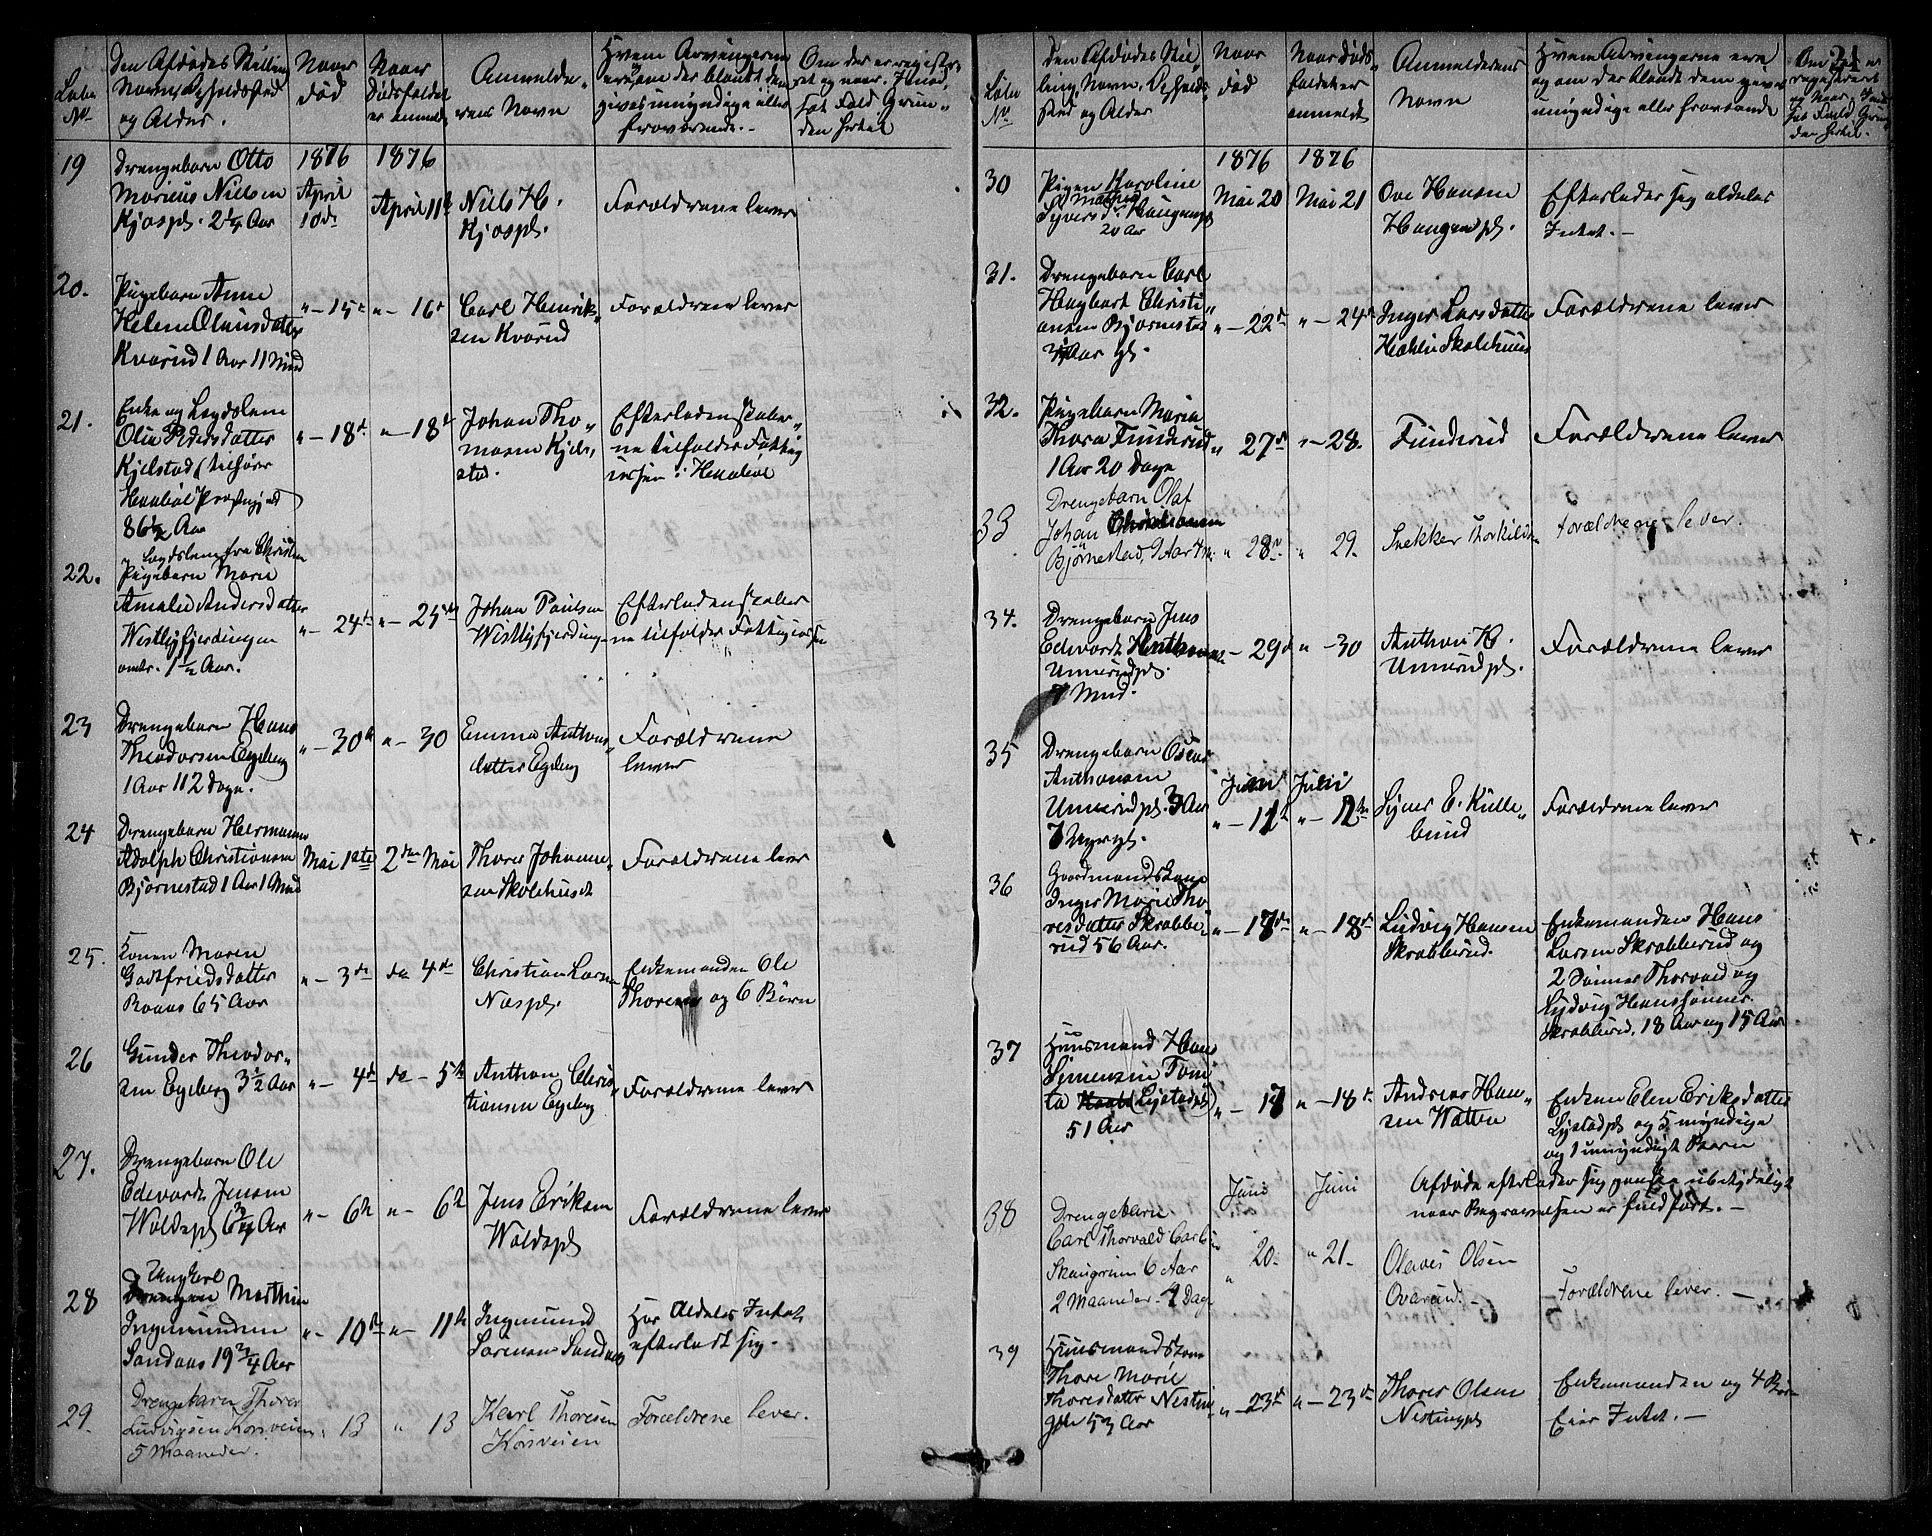 Løbe
No
Den Afdødes Stilling
Navn, Opholdssted
og Alder.
Naar
død
Naar
Dødsfaldet
er anmeldt
Anmelde-
rens Navn
Hvem Arvingerne
ere, om der blandt dem
gives umyndige eller
fraværende.-
Om der er registre-
ret og naar. I mod-
sat Fald Grun-
den hertil
19
Drengebarn Otto
Marius Nielsen
Kjospl. 2¼ Aar
1876
April
10de
1876
April 11te
Niels H.
Kjospl.
Forældrene lever
20.
Pigebarn Anne
Helene Olausdatter
Kvarud 1 Aar 11 Mnd
" - 15e
" - 16e
Carl Henrik-
sen Kvarud
Forældrene lever
21.
Enke og Lægdslem
Olia Pedersdatter
Kjelstad (tilhører
Hemnæs Præstegjeld
86½ Aar
" - 18de
" - 18de
Johan Tho-
masen Kjel-
stad.
Efterladenskaber-
ne tilfalder Fattig
22.
Lægdslem fra Christia
Pigebarn Marie
Amalie Andersdatter
Westbyfjerdingen
1½ Aar.
" - 24de
" - 25de
Johan Paulsen
Westbyfjerdingen
Efterladenskaber
ne tilfalder
23
Drengebarn Hans
Theodorsen Egeberg
1 Aar 112 Dage.
" - 30te
" - 30
Emma Anthons
datter Egeberg
Forældrene
lever
24
Drengebarn Herman
Adolph Christiansen
Bjørnestad 1 Aar 1 Mnd
Mai 1ste
2den Mai
Thorer Johanne-
sen Skolehuset
Forældrene lever
25.
Konen Maren
Godtfriedsdatter
Raaas 65 Aar
" - 3de
do 4de
Christian Larsen
Næspl.
Enkemanden Ole
Thoresen og 6 Børn
26
Gunder Theodor-
sen Egeberg 3½ Aar
" - 4de
do - 5te
Anthon Chris-
tiansen Egeberg
Forældrene lever
27.
Drengebarn Ole
Edvardt Jensen
Woldspl 6¾ Aar
" - 6te
" - 6te
Jens Eriksen
Woldspl
Forældrene lever
28
Ungkarl
Drengen Martin
Ingemundsen
Sandaas 19¾ Aar
" - 10de
" - 11te
Ingemund
Sørensen Sandaas
Har Aldeles Intet
efterladt sig.
29.
Drengebarn Thorer
Ludvigsen Korsveien
5 Maaneder.
" 13
" 13
Karl Thoresen
Korsveien
Forældrene lever.
21
Løbe
No
Den Afdødes Stil-
ling, Navn, Opholds-
sted og Alder
Naar
død
Naar Døds-
faldet er
anmeldt
Anmelderens
Navn
Hvem Arvingerne ere
og om der blandt dem gives
umyndige eller fraværende
Om der er
registreret
og Naar. I mod-
sat Fald Grun-
den hertil.
30
Pigen Karoline
Mathea
Syversdr Haugenpl
20 Aar
1876
Mai 20
1876
Mai 21
Ove Hansen
Haugenpl.
Efterlader sig aldeles
Intet.-
31.
Drengebarn Carl
Hagbart Christi-
ansen Bjørnestad
" - 22de
" - 24de
Inger Larsdatter
Hæhli Skolehuus
Forældrene lever
32.
Pigebarn Maria
Thora Funderud
1 Aar 20 Dage
" 27de
" - 28.
Funderud
Forældrene lever
33
Drengebarn Olaf
Johan Christiansen
Bjørnestad,
" 28de
" 29.
Snekker Thorkildsen
Forældrene lever.
34.
Drengebarn Jens
Edvardt Anthonsen
Unnerudpl.
7 Mnd.
" - 29de
" - 30
Anthon H.
Unnerudpl.
Forældrene lever
35
Drengebarn Oscar
Anthonsen
Unnerudpl. 3 Aar
Juni
" - 11te
Juni
" - 12te
Syver E. Kulle-
bund
Forældrene lever
36
Gaardmandskone
Inger Marie Tho-
resdatter Skrabbe-
rud 56 Aar.
" - 17de
" - 18de
Ludvig Hansen
Skrabberud.
Enkemanden Hans
Larsen Skrabberud og
2 Sønner Thorvald og
Ludvig Hanssønner
Skrabberud, 18 Aar og 15 Aar
37
Huusmand Hans
Simensen Tom-
ta (Lystadpl)
51 Aar
" - 17
" - 18de
Andreas Han-
sen Watten
Enken Elen Eriksdatter
Lystadpl og 5 myndige
og 1 umyndigt Barn
Afdøde efterlader sig ganske ubetydeligt
naar Begravelsen er fuldført.-
38
Drengebarn
Carl Thorvald Carlsen
Skaugrim 6 Aar
2 Maaneder. 4 Dage
Juni
" 20.
Juni
" 21-
Olaves Olsen
Ovarud.-
Forældrene lever.-
39
Huusmandskone
Thore Marie
Thoresdatter Nestin
53 Aar
" - 23de
" - 23de
Thorer Olsen
Nestingpl
Enkemanden og 4 Børn
Eier Intet.-